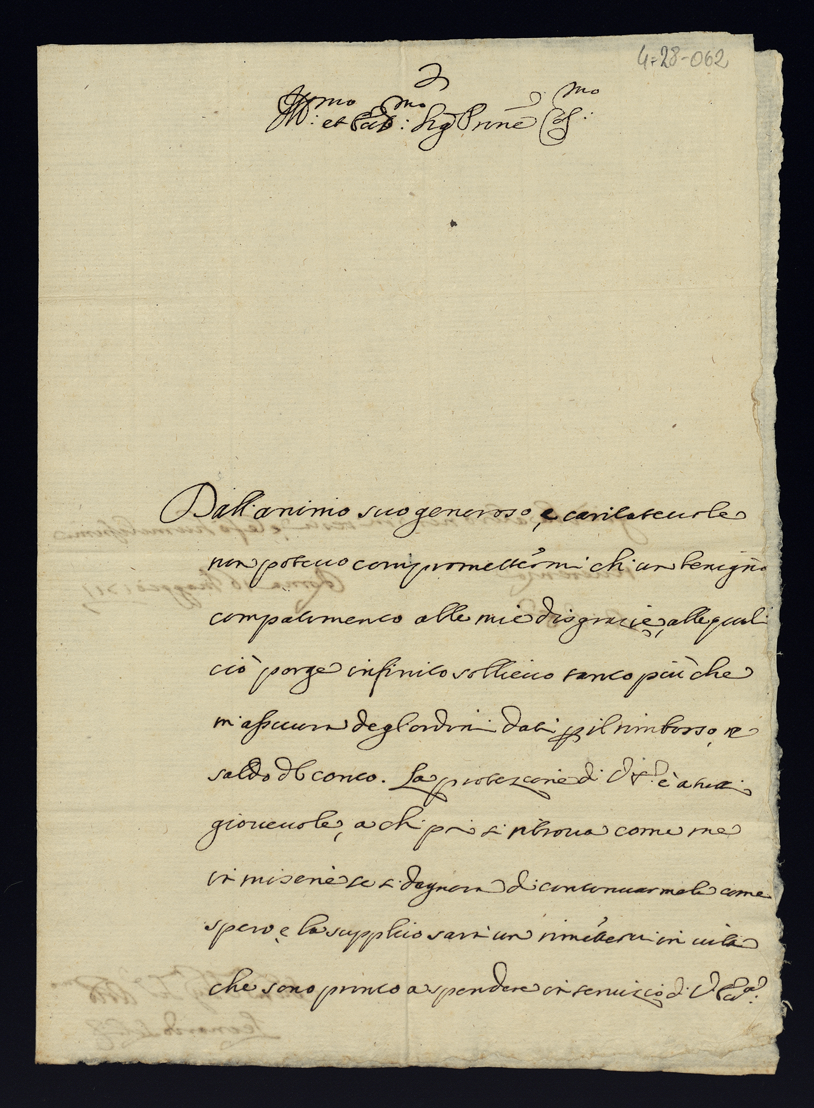 4-28-062
Ill.mo et Ecc.mo Sig.r Prine
Dall'animo suo generoso, e caritateuole
non poteuo compromettermi ch'un benigno
compatimento alle mie disgracie, alle quali
ciò porge infinito sollieuo tanto più che
m'assicura degl'ordini dati p il rimborso, e
saldo del conto. La protezione di V.E. è a tutti
gioueuole, a chi poi si ritroua come me
in miserie se si degnera di continuarmela come
spero, e la supplico sarà un rimettermi in uita
che sono pronto a spendere in seruizio di V. Ecc.a